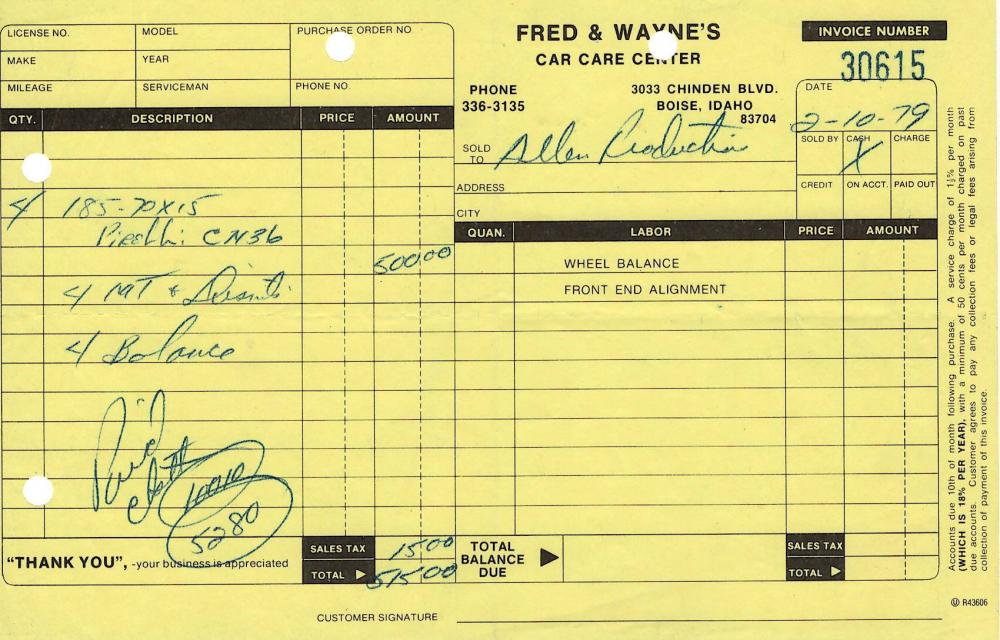 LICENSE NO.
MODEL
PURCHASE ORDER NO
MAKE
YEAR
MILEAGE
SERVICEMAN
PHONE NO.
FRED & WAYNE'S
CAR CARE CENTER
PHONE
336-3135
3033 CHINDEN BLVD.
BOISE, IDAHO
83704
INVOICE NUMBER
30615
DATE
2-10-79
SOLD TO Allen Production
SOLD BY CASH X CHARGE
ADDRESS
CREDIT ON ACCT. PAID OUT
CITY
QTY. DESCRIPTION PRICE AMOUNT
4 185-70X15
Pirelli CN36
500 00
4 MT &
4 Balance
Paid
5280
QUAN. LABOR PRICE AMOUNT
WHEEL BALANCE
FRONT END ALIGNMENT
"THANK YOU", -your business is appreciated
SALES TAX 15 00
TOTAL 515 00
TOTAL BALANCE DUE
SALES TAX
TOTAL
CUSTOMER SIGNATURE
Accounts due 10th of month following purchase. A service charge of 1½% per month
(WHICH IS 18% PER YEAR), with a minimum of 50 cents per month charged on past
due accounts. Customer agrees to pay any collection fees or legal fees arising from
collection of payment of this invoice.
R43606